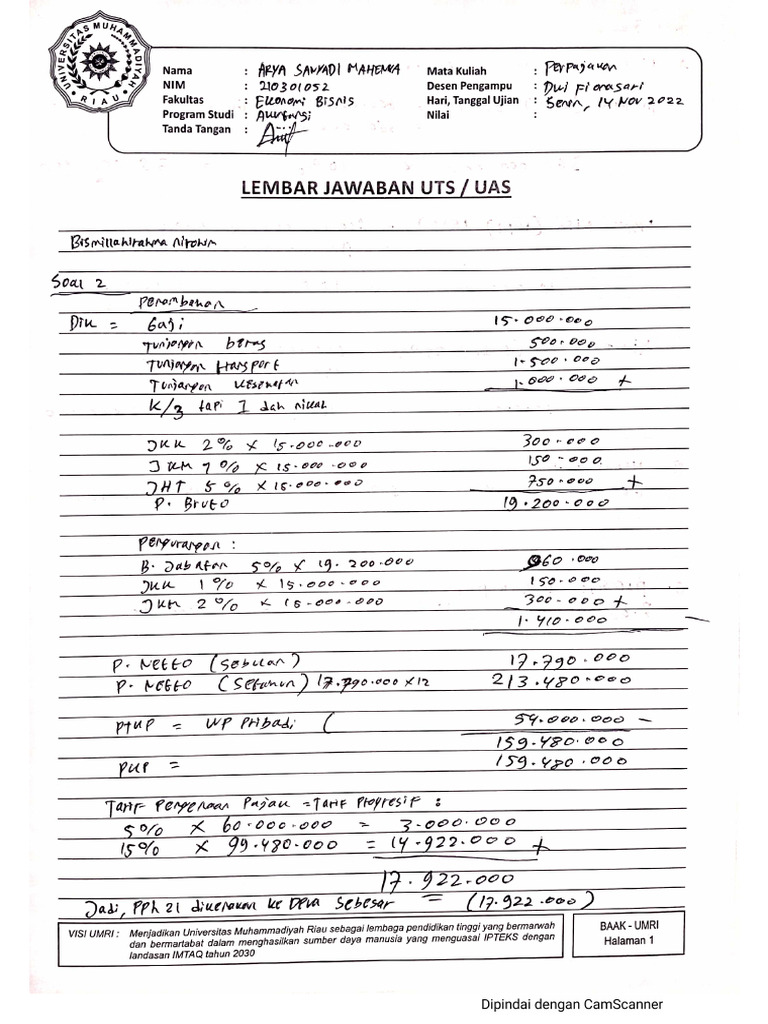 UNIVERSITAS MUHAMMADIYAH RIAU
Nama : ARYA SAUYADI MAHENKA
NIM : 210301052
Fakultas : Ekonomi Bisnis
Program Studi : Akuntansi
Tanda Tangan :
Mata Kuliah : Perpajakan
Desen Pengampu : Dwi Fionasari
Hari, Tanggal Ujian : Senin, 14 Nov 2022
Nilai :
LEMBAR JAWABAN UTS / UAS
Bismillahirahmanirohim
Soal 2
Penambahan
Dik = Gaji 15.000.000
Tunjangan beras 500.000
Tunjangan transport 1.500.000
Tunjangan kesehatan 1.000.000 +
K/3 tapi 1 dah nikah
JKK 2% x 15.000.000 300.000
JKM 1% x 15.000.000 150.000
JHT 5% x 15.000.000 750.000 +
P. Bruto 19.200.000
Pengurangan :
B. Jabatan 5% x 19.200.000 960.000
JKK 1% x 15.000.000 150.000
JKM 2% x 15.000.000 300.000 +
1.410.000 -
P. Netto (Sebulan) 17.790.000
P. Netto (Setahun) 17.790.000 x 12 213.480.000
PTKP = WP Pribadi ( 54.000.000 -
159.480.000
PKP = 159.480.000
Tarif Pengenaan Pajak = Tarif Progresif :
5% x 60.000.000 = 3.000.000
15% x 99.480.000 = 14.922.000 +
17.922.000
Jadi, PPh 21 dikenakan ke Deva Sebesar = (17.922.000)
VISI UMRI : Menjadikan Universitas Muhammadiyah Riau sebagai lembaga pendidikan tinggi yang bermarwah
dan bermartabat dalam menghasilkan sumber daya manusia yang menguasai IPTEKS dengan
landasan IMTAQ tahun 2030
BAAK - UMRI
Halaman 1
Dipindai dengan CamScanner